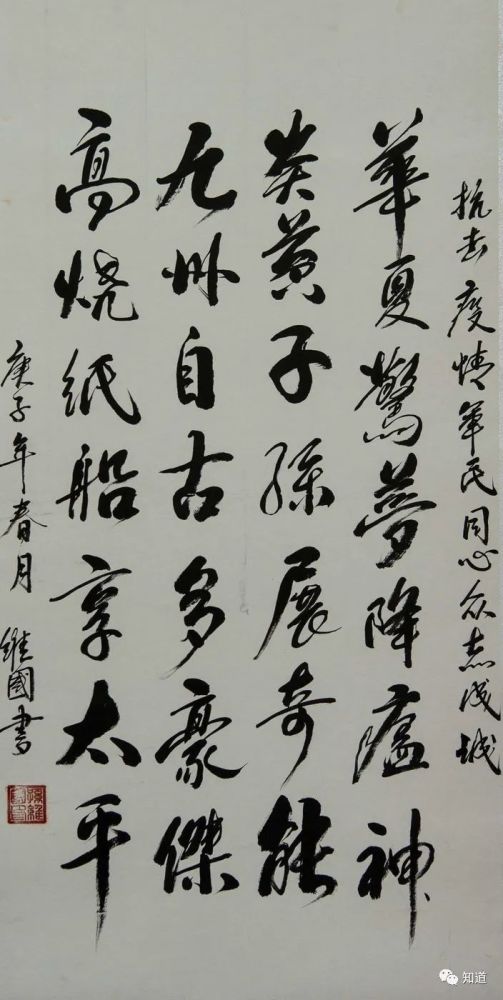 抗击疫情军民同心众志成城
華夏驚夢降瘟神
炎黄子孫展奇能
九州自古多豪傑
高烧纸船享太平
庚子年春月
維國書
知道